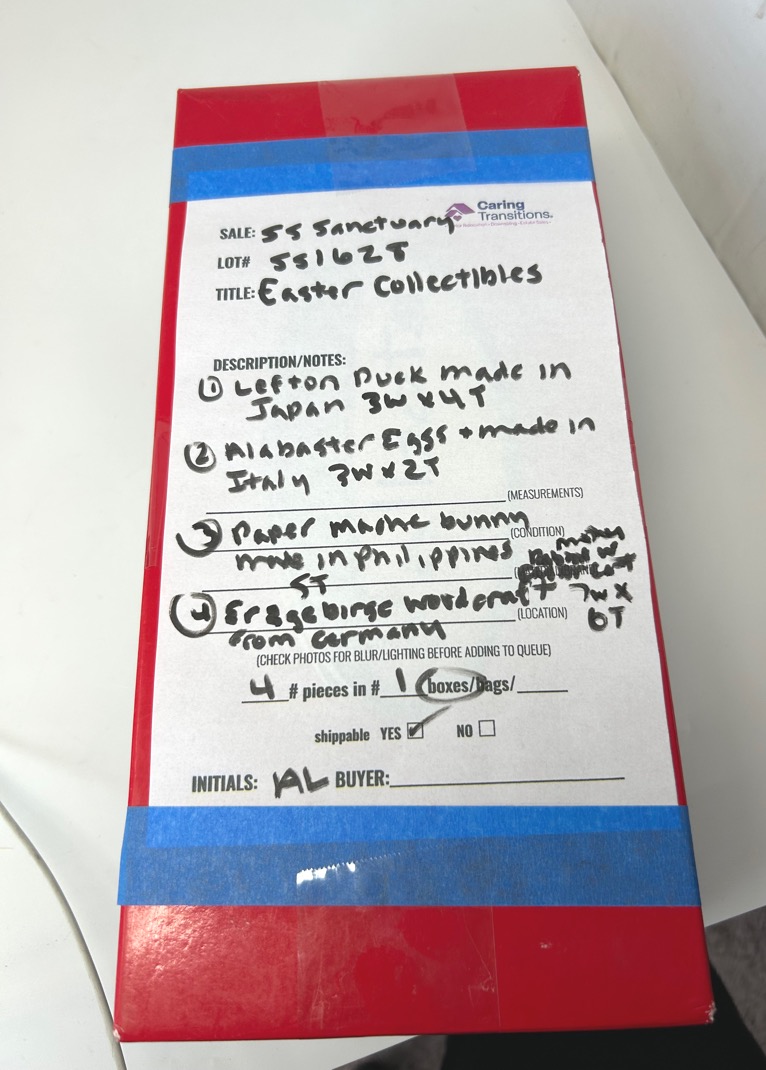 Caring
Transitions.
SALE: SS Sanctuary
LOT# SS162T
TITLE: Easter Collectibles
DESCRIPTION/NOTES:
① Lefton Duck made in
Japan 3W x 4T
② Alabaster Eggs + made in
Italy 3W x 2T
(MEASUREMENTS)
③ Paper mache bunny
(CONDITION)
made in Philippines
5T
④ Erzgebirge woodcraft 7W x
(LOCATION) 6T
from Germany
(CHECK PHOTOS FOR BLUR/LIGHTING BEFORE ADDING TO QUEUE)
4 # pieces in # 1 (boxes/bags/
shippable YES ☑ NO ☐
INITIALS: AL BUYER: